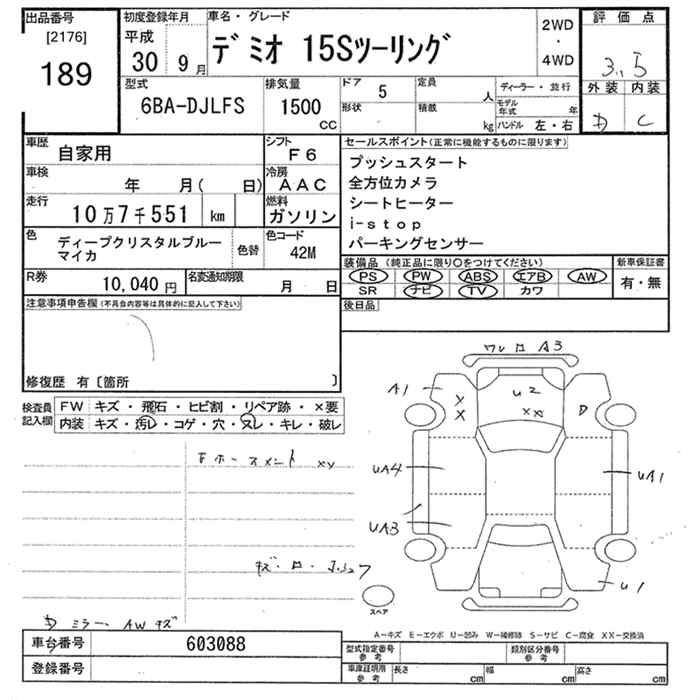 出品番号 初度登録年月 車名・グレード
[2176] 平成
189 30 9月 デミオ 15Sツーリング 2WD・4WD
評価点
3.5
外装 内装
D C
型式 排気量 ドア 定員 ディーラー・並行
6BA-DJLFS 1500 CC 5 人
形状 積載 kg モデル年式 年
ハンドル 左・右
車歴 自家用 シフト F6
車検 年 月( 日) 冷房 AAC
走行 10万7千551 km 燃料 ガソリン
色 ディープクリスタルブルーマイカ 色替 色コード 42M
R券 10,040円 名変通知期限 月 日
セールスポイント(正常に機能するものに限ります)
プッシュスタート
全方位カメラ
シートヒーター
i-stop
パーキングセンサー
装備品(純正品に限り○をつけてください) 新車保証書
PS PW ABS エアB AW 有・無
SR ナビ TV カワ
後日品
注意事項申告欄(不具合内容等は具体的に記入して下さい)
修復歴 有〔箇所 〕
検査員記入欄 FW キズ・飛石・ヒビ割・リペア跡・×要
内装 キズ・汚レ・コゲ・穴・スレ・キレ・破レ
A3
A1
U2
XX
X
X
D
UA4
UA1
UA3
U1
スペア
ミラー AWキズ
A-キズ E-エクボ U-凹み W-補修跡 S-サビ C-腐食 XX-交換済
車台番号 603088
登録番号
型式指定番号 参考 類別区分番号 参考
車庫証明用 参考 長さ cm 幅 cm 高さ cm